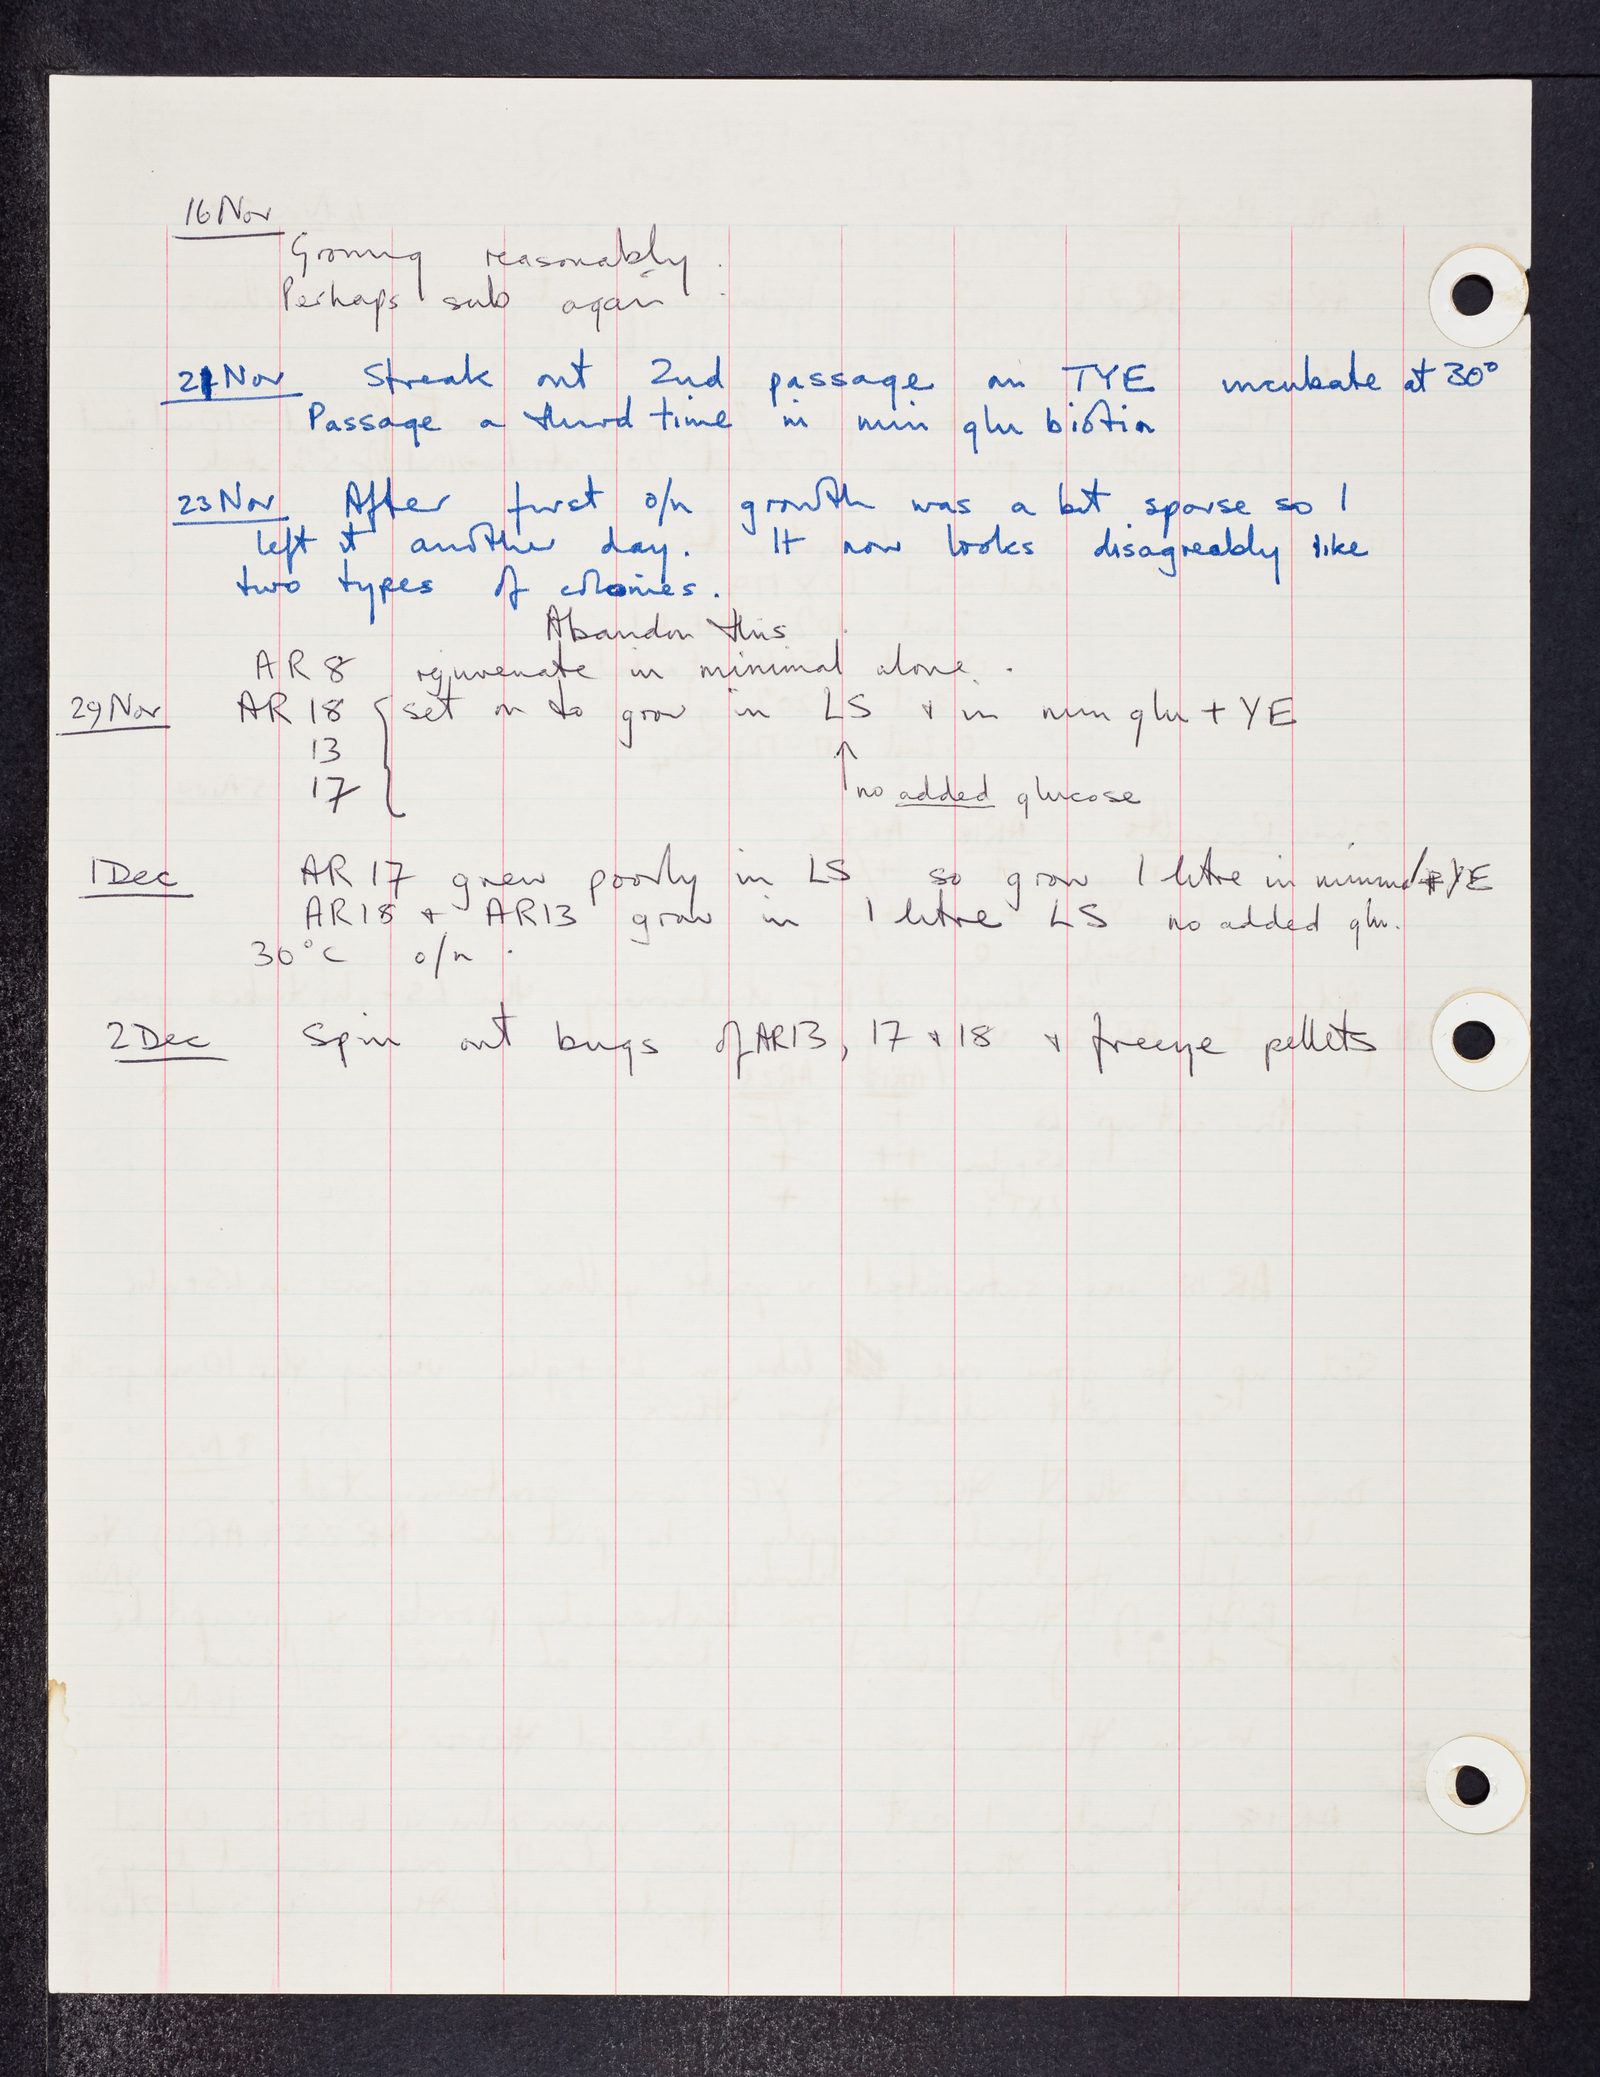 16 Nov
Growing reasonably.
Perhaps sub again.
21 Nov Streak out 2nd passage on TYE incubate at 30°
Passage a third time in min glu biotin
23 Nov After first o/n growth was a bit sparse so I
left it another day. It now looks disagreably like
two types of colonies.
Abandon this.
AR 8 rejuvenate in minimal alone.
29 Nov AR 18 { set on to grow in LS + in min glu + YE
13
17
↑ no added glucose
1 Dec AR 17 grew poorly in LS so grow 1 litre in minimal + YE
AR18 + AR13 grow in 1 litre LS no added glu.
30°C o/n.
2 Dec Spin out bugs of AR13, 17 + 18 + freeze pellets